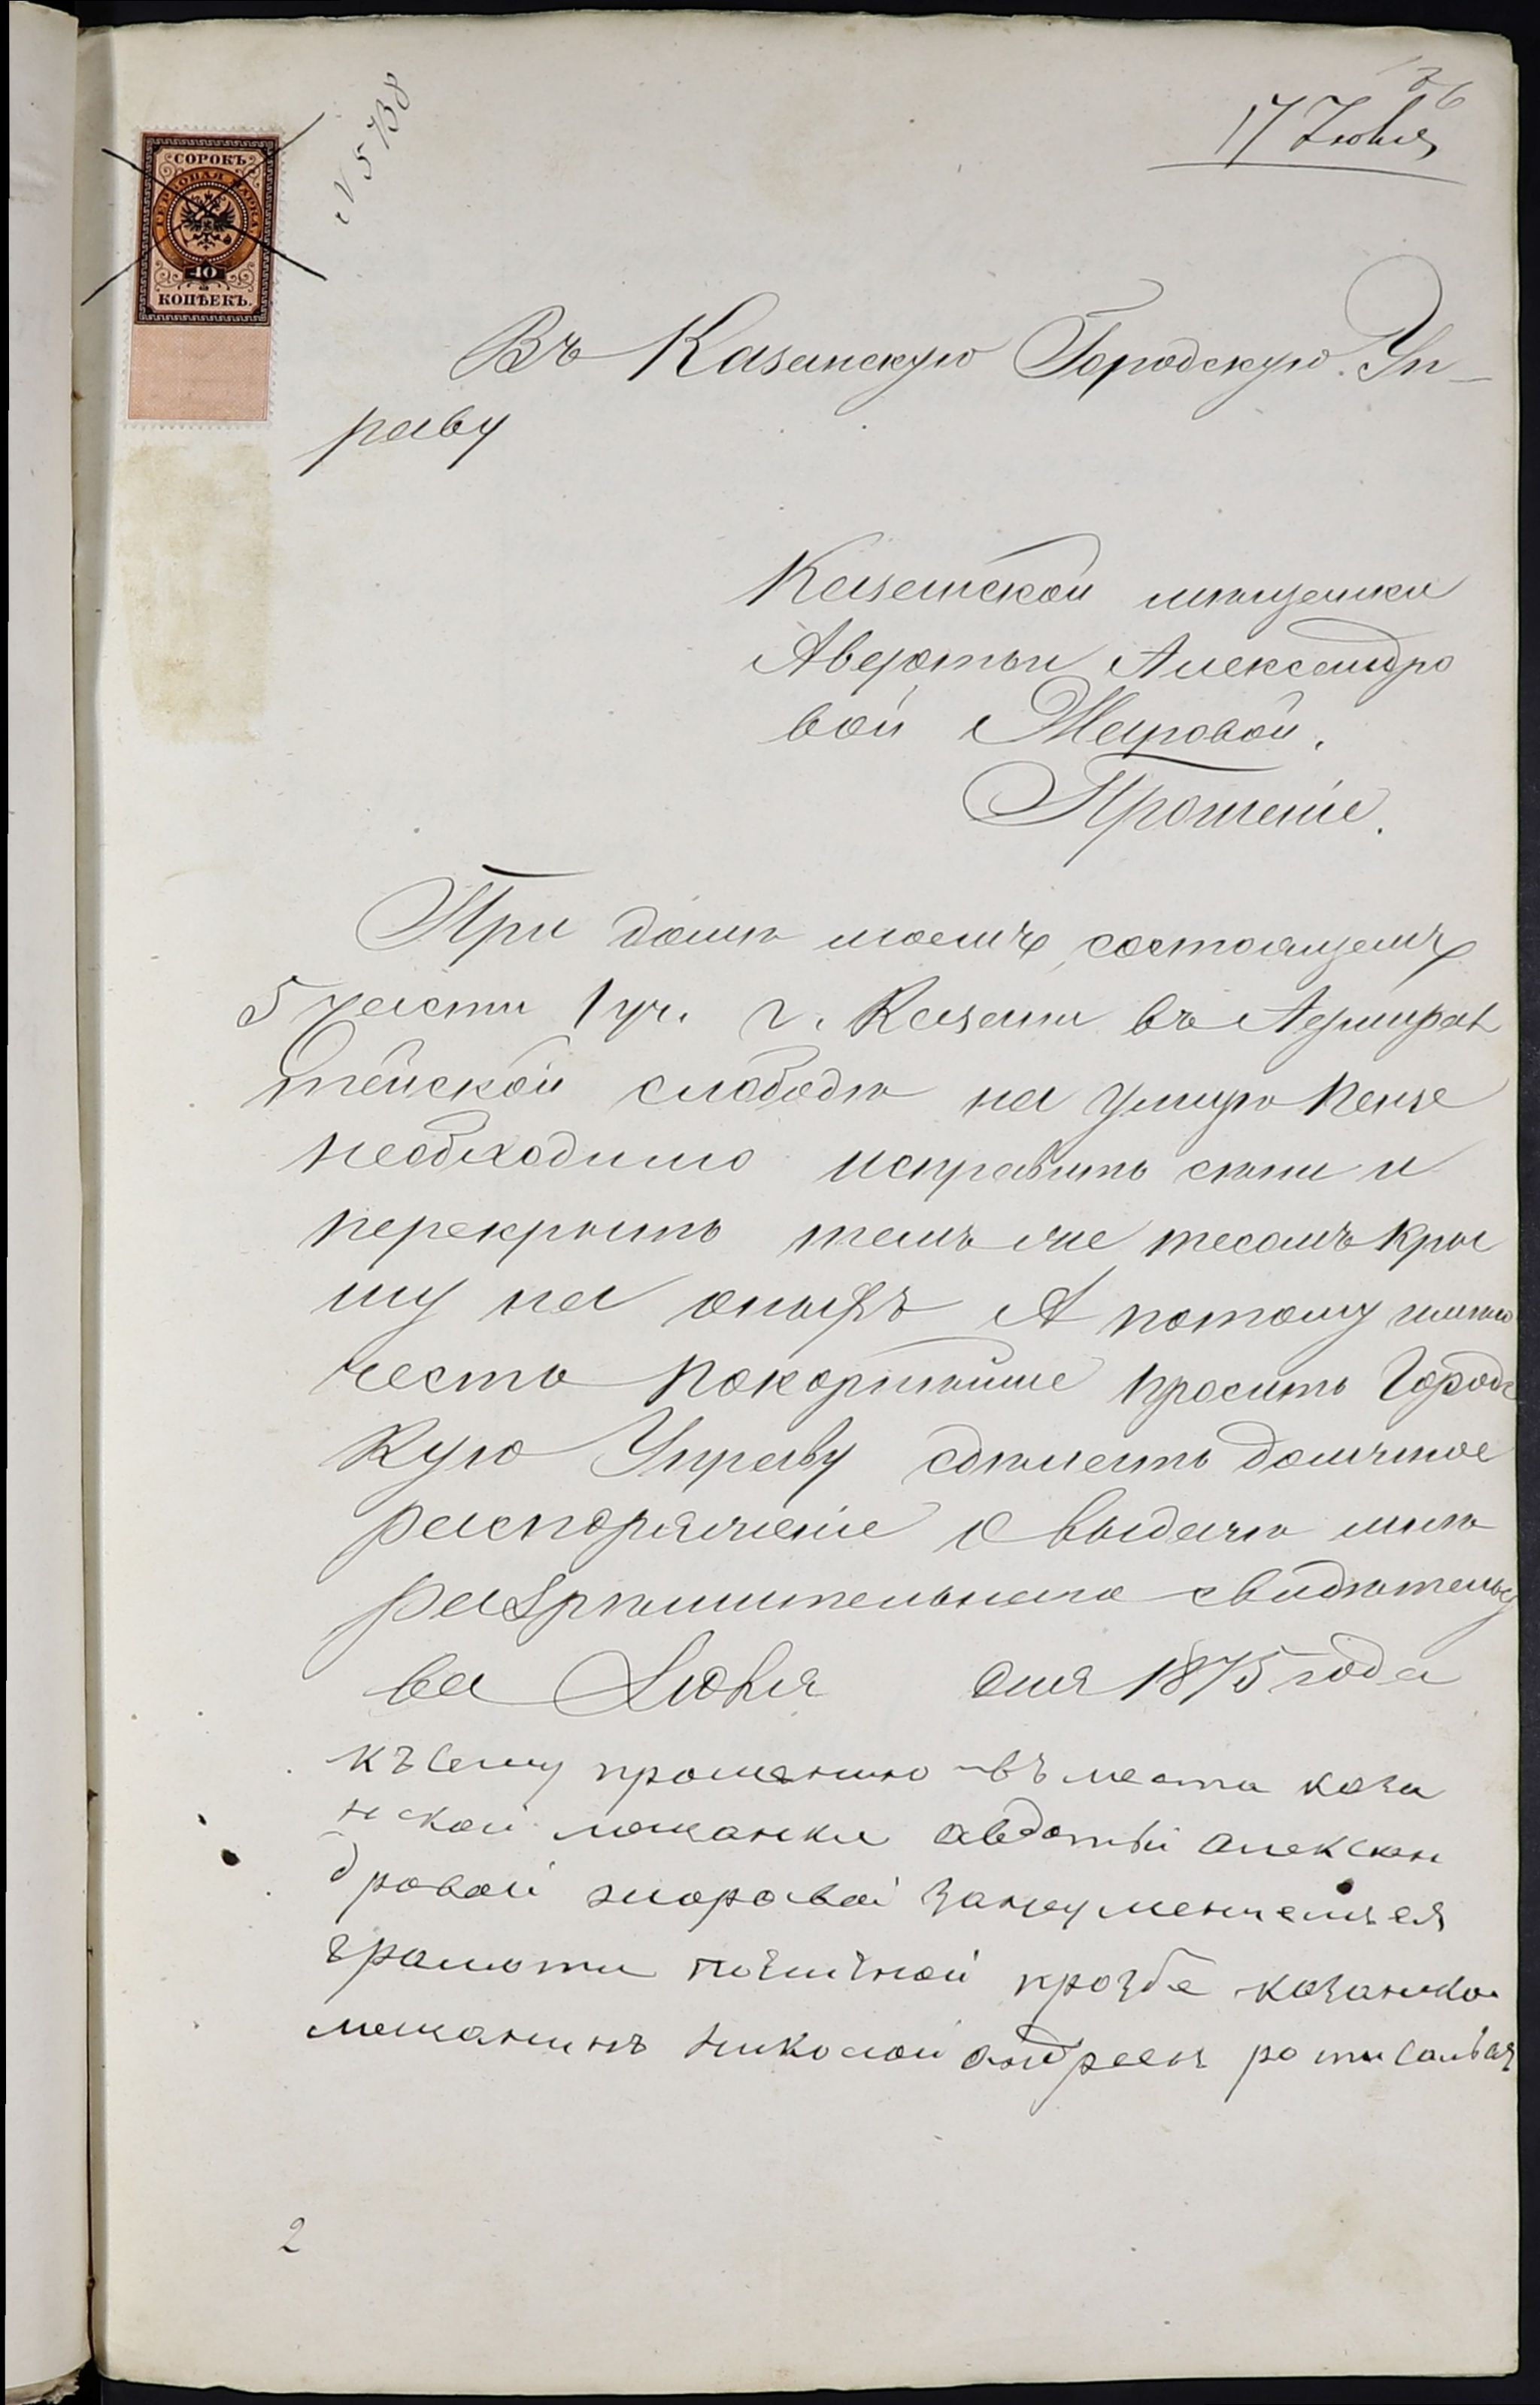 36
17 Июля
№ 5738
СОРОКЪ
ГЕРБОВАЯ МАРКА
40
КОПѢЕКЪ.
Въ Казанскую Городскую Уп-
раву
Казанской мѣщанки
Авдотьи Александро
вой Жаровой.
Прошеніе.
При домѣ моемъ, состоящемъ
5 части 1 уч. г. Казани въ Адмирал
тейской слободѣ на улицѣ
необходимо исправить сѣни и
перекрыть тамъ же тесомъ кры
шу на оныхъ А потому имѣю
честь покорнѣйше просить Городс
кую Управу сдѣлать должное
распоряженіе о выдачѣ мнѣ
разрѣшительнаго свидѣтельст
ва Июля дня 1875 года
къ сему прошению въместа каза
нской мещанки авдотьи александ
дровай жаровай занеуменнемъ ея
грамоти поеличной прозбе казанско
мещанинъ николай андреевъ росписалься
2